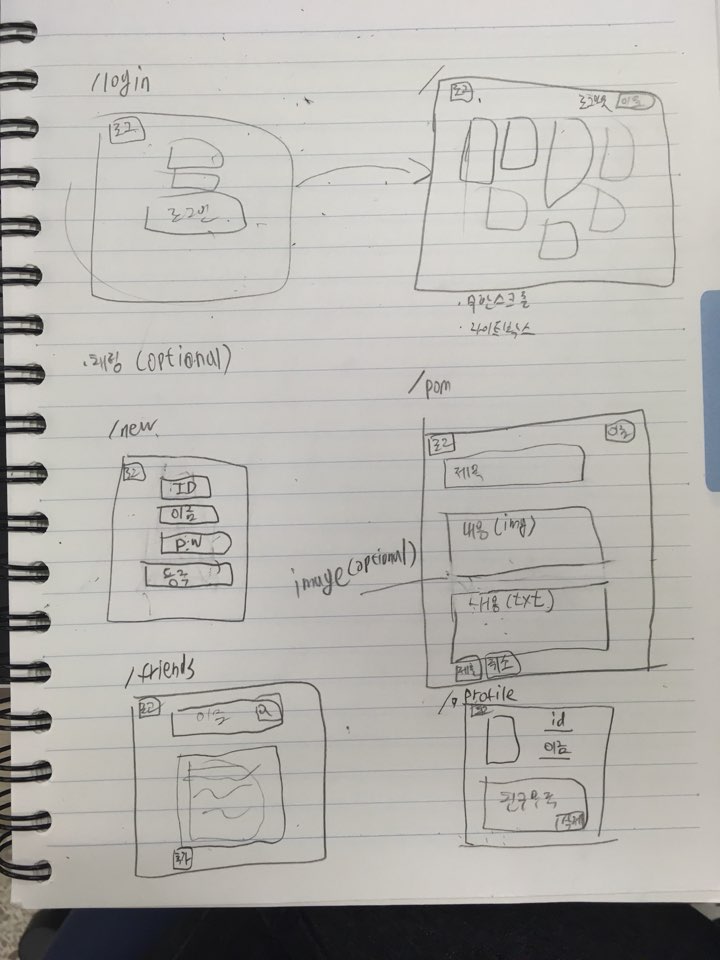 /login
로고
로그인
/
로고
로그아웃 이름
· 무한스크롤
· 라이트박스
· 채팅 (optional)
/new
로고
ID
이름
P.W
등록
/pom
로고
이름
제목
내용 (img)
image (optional)
내용 (txt)
제출 취소
/friends
로고
이름
추가
/profile
로고
id
이름
친구목록
삭제